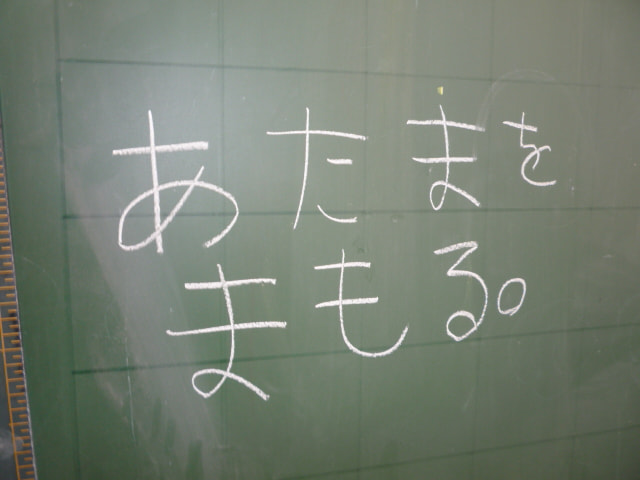 あたまを
まもる。